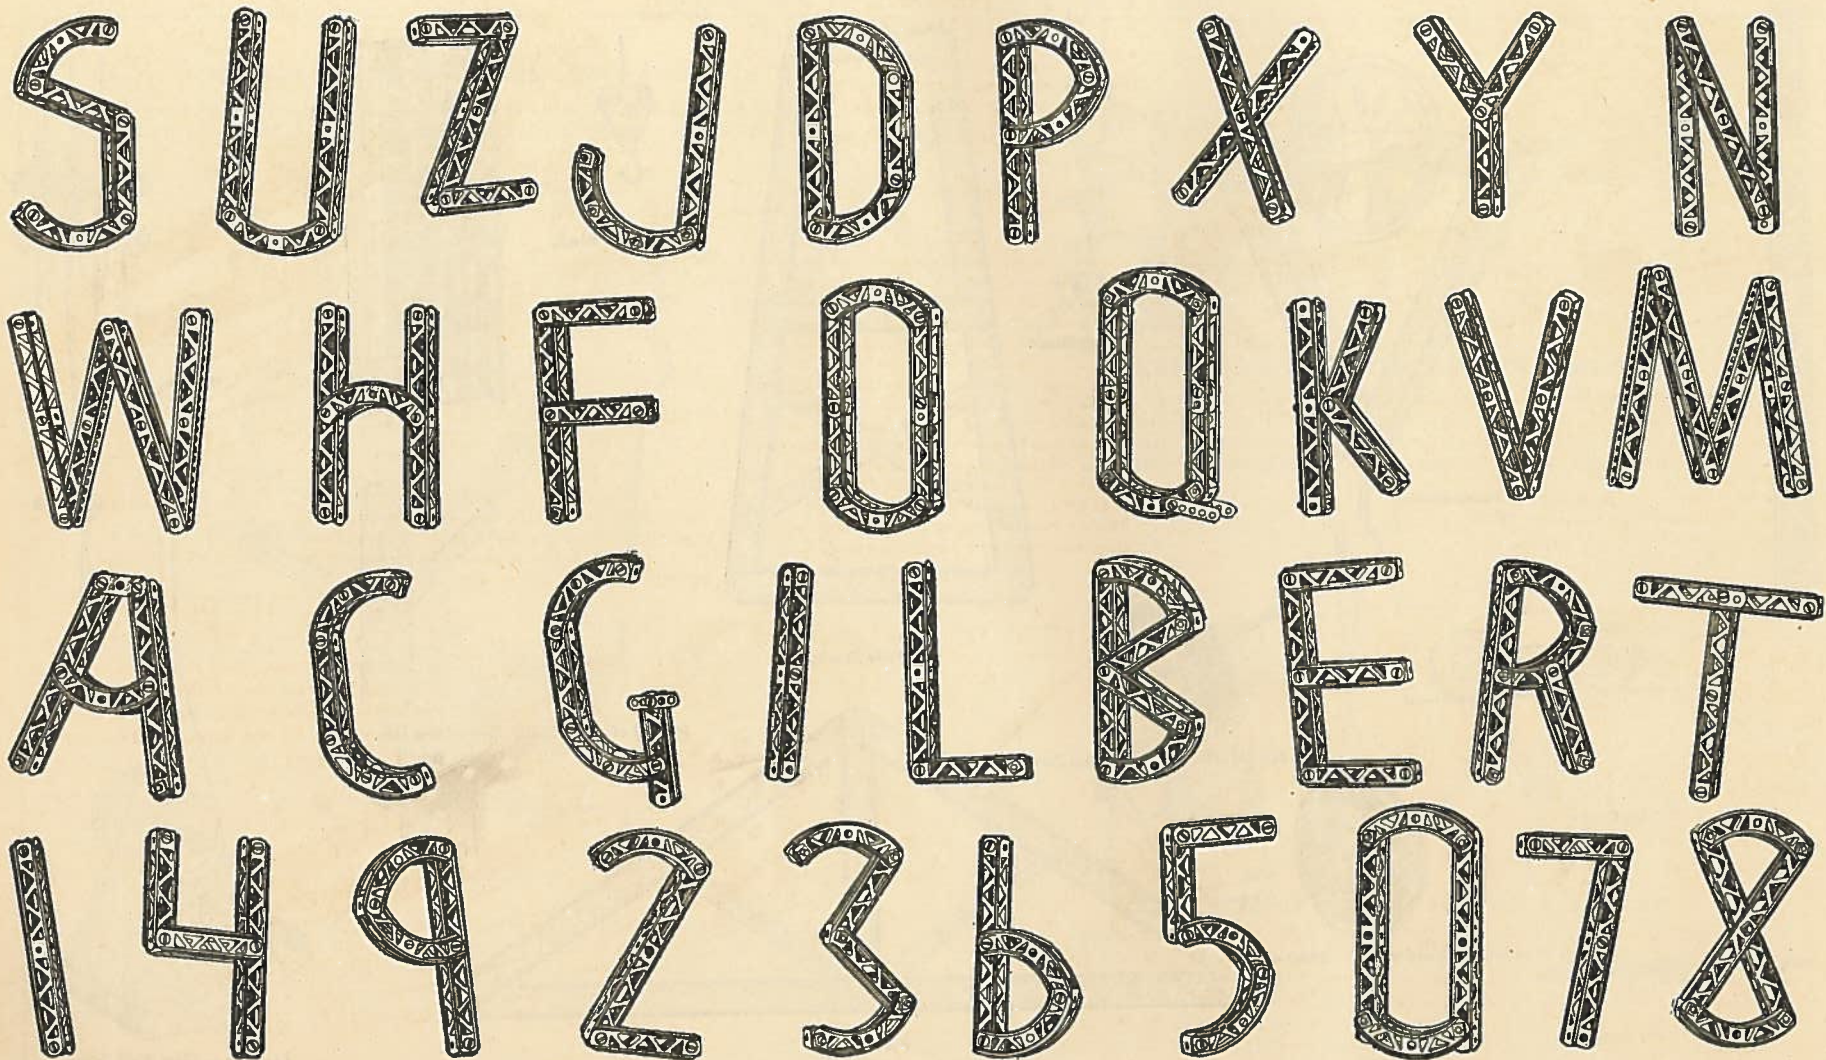 S U Z J D P X Y N
W H F O Q K V M
A C G I L B E R T
1 4 9 2 3 6 5 0 7 8